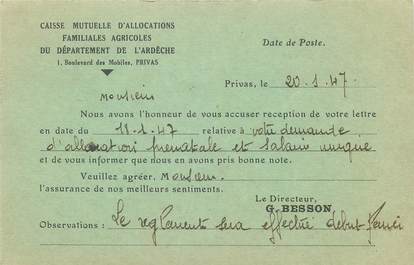 CAISSE MUTUELLE D'ALLOCATIONS
FAMILIALES AGRICOLES
DU DÉPARTEMENT DE L'ARDÈCHE
1, Boulevard des Mobiles, PRIVAS
Date de Poste.
Privas, le 20.1.47
Monsieur
Nous avons l'honneur de vous accuser reception de votre lettre
en date du 11.1.47 relative à votre demande
d'allocation prénatale et salaire unique
et de vous informer que nous en avons pris bonne note.
Veuillez agréer, Monsieur
l'assurance de nos meilleurs sentiments.
Le Directeur,
G. BESSON.
Observations : Le reglement sera effectué début